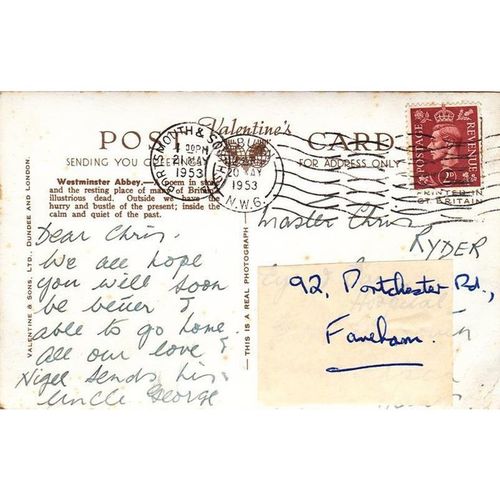 Valentine's
POST CARD
SENDING YOU GREETINGS
FOR ADDRESS ONLY
PORTSMOUTH &
20PM
21 MAY
1953
20 MAY
1953
N.W.6.
POSTAGE
REVENUE
2D
PRINTED IN
GT. BRITAIN
Westminster Abbey.—A poem in stone
and the resting place of many of Britain's
illustrious dead. Outside we have the
hurry and bustle of the present; inside the
calm and quiet of the past.
VALENTINE & SONS, LTD., DUNDEE AND LONDON.
THIS IS A REAL PHOTOGRAPH
Dear Chris.
We all hope
you will soon
be better &
able to go home.
All our love &
Nigel sends his
Uncle George
Master Chris
RYDER
92, Portchester Rd.,
Fareham.